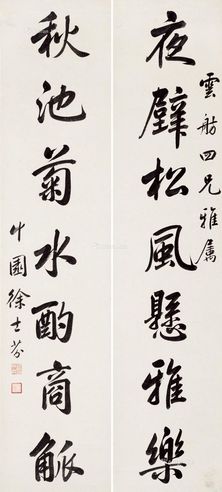 雲舫四兄雅屬
夜壁松風懸雅樂
秋池菊水酌商觚
徐士芬